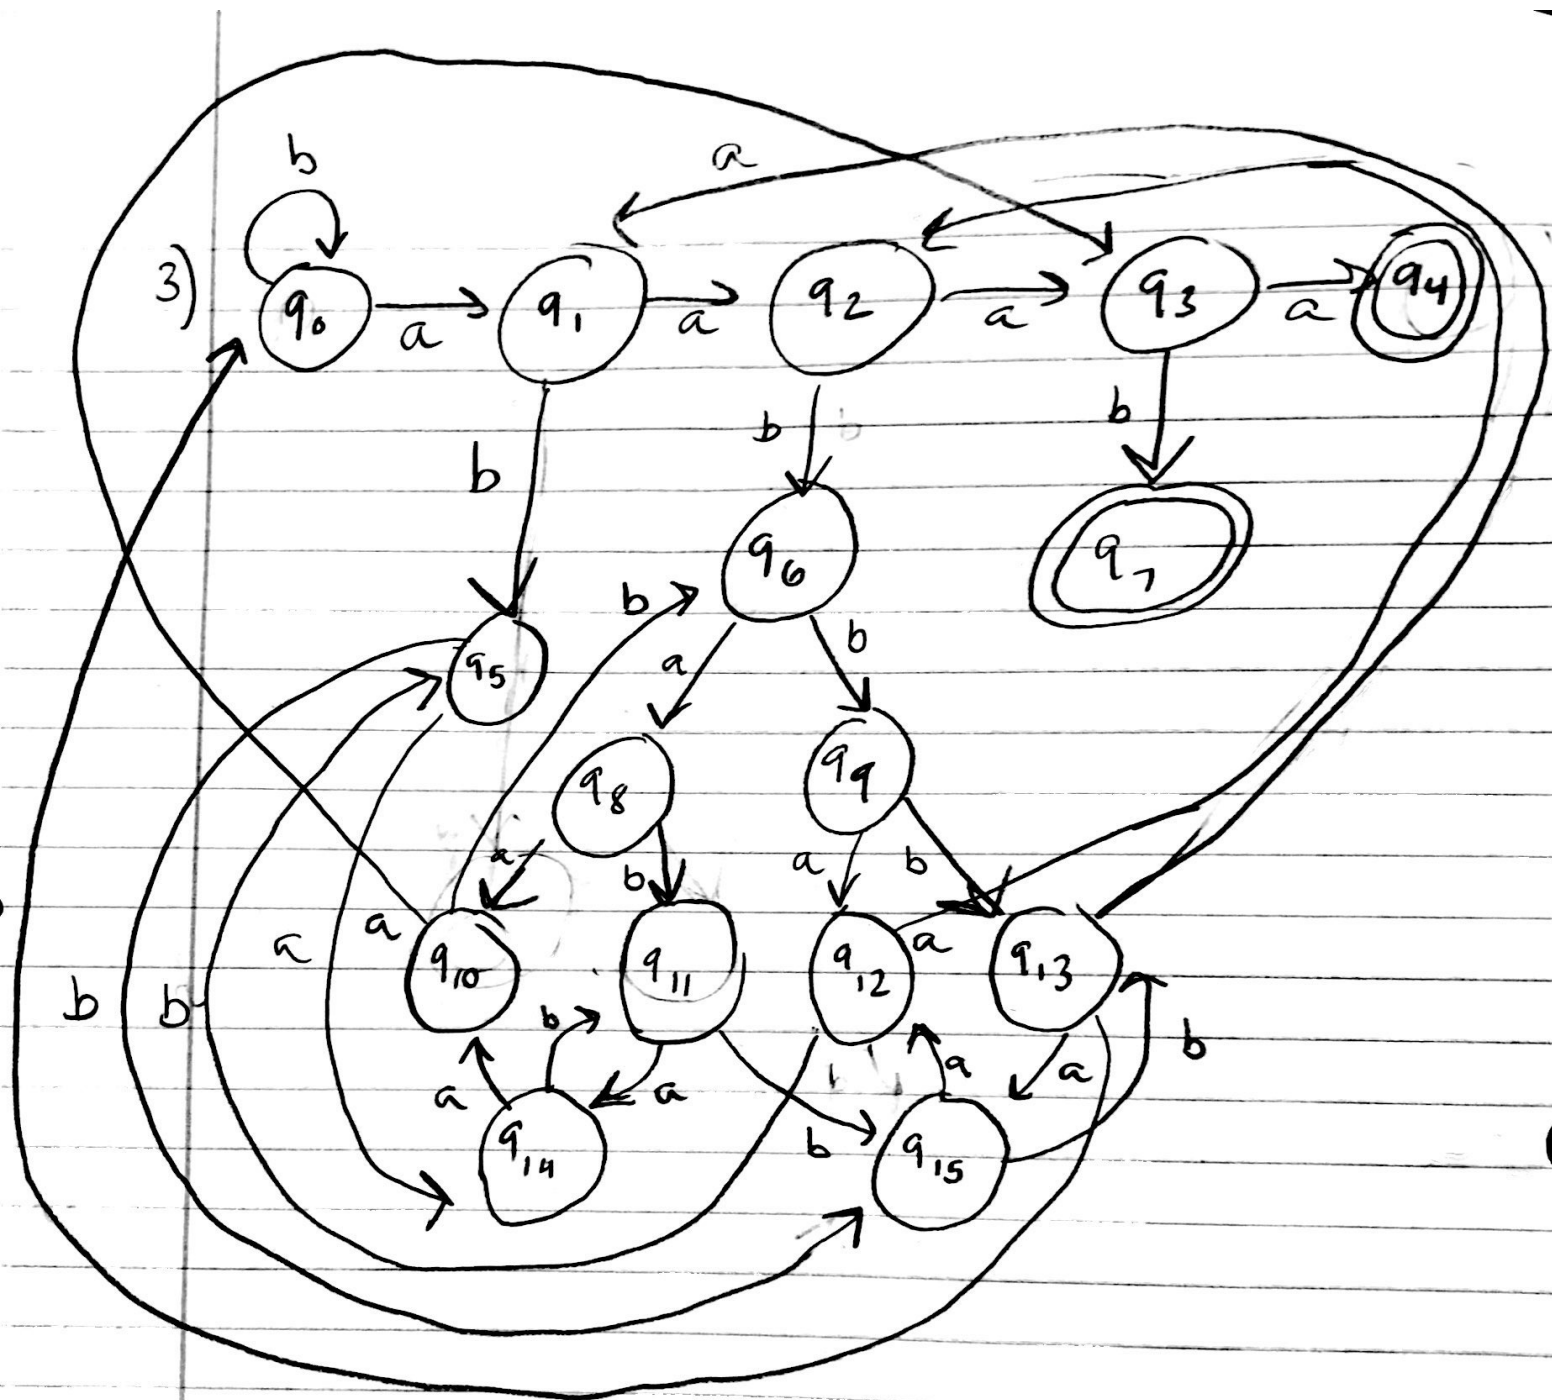 b
a
3)
q0
a
q1
a
q2
a
q3
a
q4
b
b
b
q6
q7
b
q5
a
b
q8
q9
a
b
a
b
a
a
q10
q11
q12
a
q13
b
b
b
a
a
a
a
b
q14
b
q15